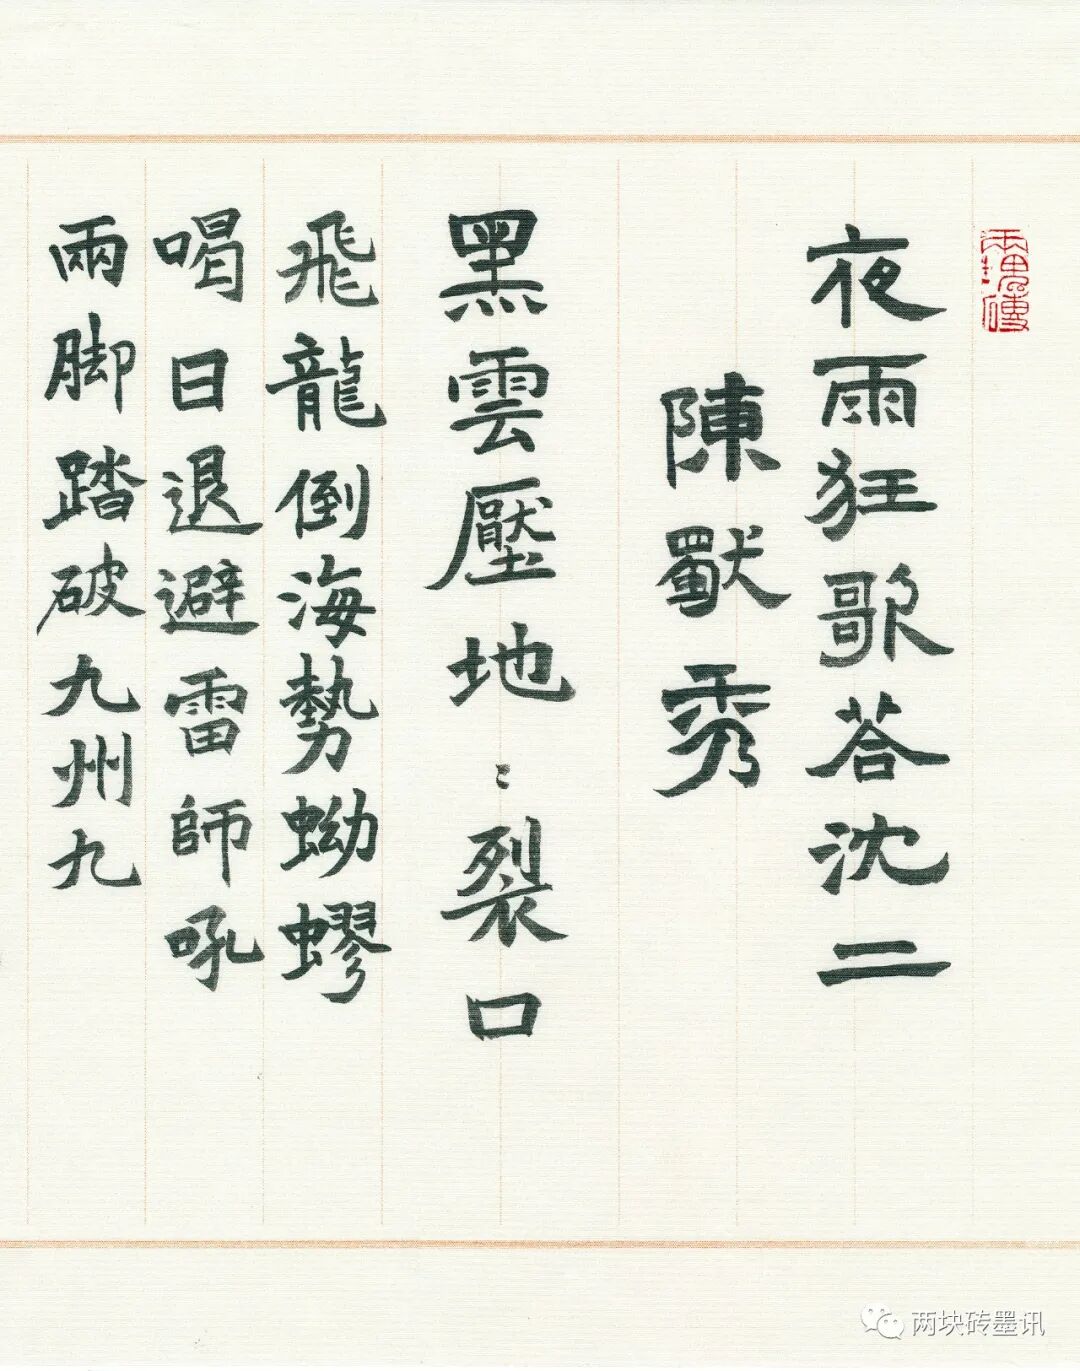 兩塊磚
夜雨狂歌荅沈二
陳獨秀
黑雲壓地〻裂口
飛龍倒海勢蚴蟉
喝日退避雷師吼
兩脚踏破九州九
两块砖墨讯